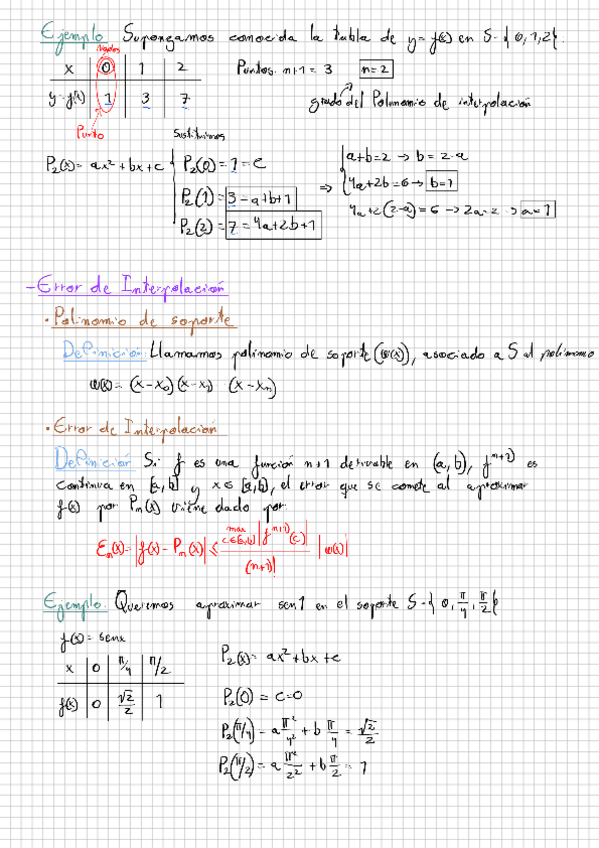 Ejemplo: Supongamos conocida la tabla de y=f(x) en S={0,1,2}.
Nodos
x 0 1 2
Puntos: n+1=3 n=2
y=f(x) 1 3 7
grado del Polinomio de interpolación
Punto
Sustituimos
P₂(x)=ax²+bx+c
P₂(0)=1=c
P₂(1)=3=a+b+1
P₂(2)=7=4a+2b+1
⇒
a+b=2→b=2-a
4a+2b=6→b=1
4a+2(2-a)=6→2a=2→a=1
-Error de Interpolación
·Polinomio de soporte
Definición: Llamamos polinomio de soporte (ω(x)), asociado a S al polinomio
ω(x)=(x-x₀)(x-x₁) (x-xₙ)
·Error de Interpolación
Definición: Si f es una función n+1 derivable en (a,b), fⁿ⁺¹⁾ es
continua en [a,b] y x∈[a,b], el error que se comete al aproximar
f(x) por Pₙ(x) viene dado por:
Eₙ(x)=|f(x)-Pₙ(x)|≤ max c∈[a,b] |fⁿ⁺¹⁾(c)| / (n+1)! |ω(x)|
Ejemplo: Queremos aproximar sen1 en el soporte S={0, π/4, π/2}
f(x)=senx
x 0 π/4 π/2
f(x) 0 √2/2 1
P₂(x)=ax²+bx+c
P₂(0)=c=0
P₂(π/4)=a π²/4²+b π/4=√2/2
P₂(π/2)=a π²/2²+b π/2=1